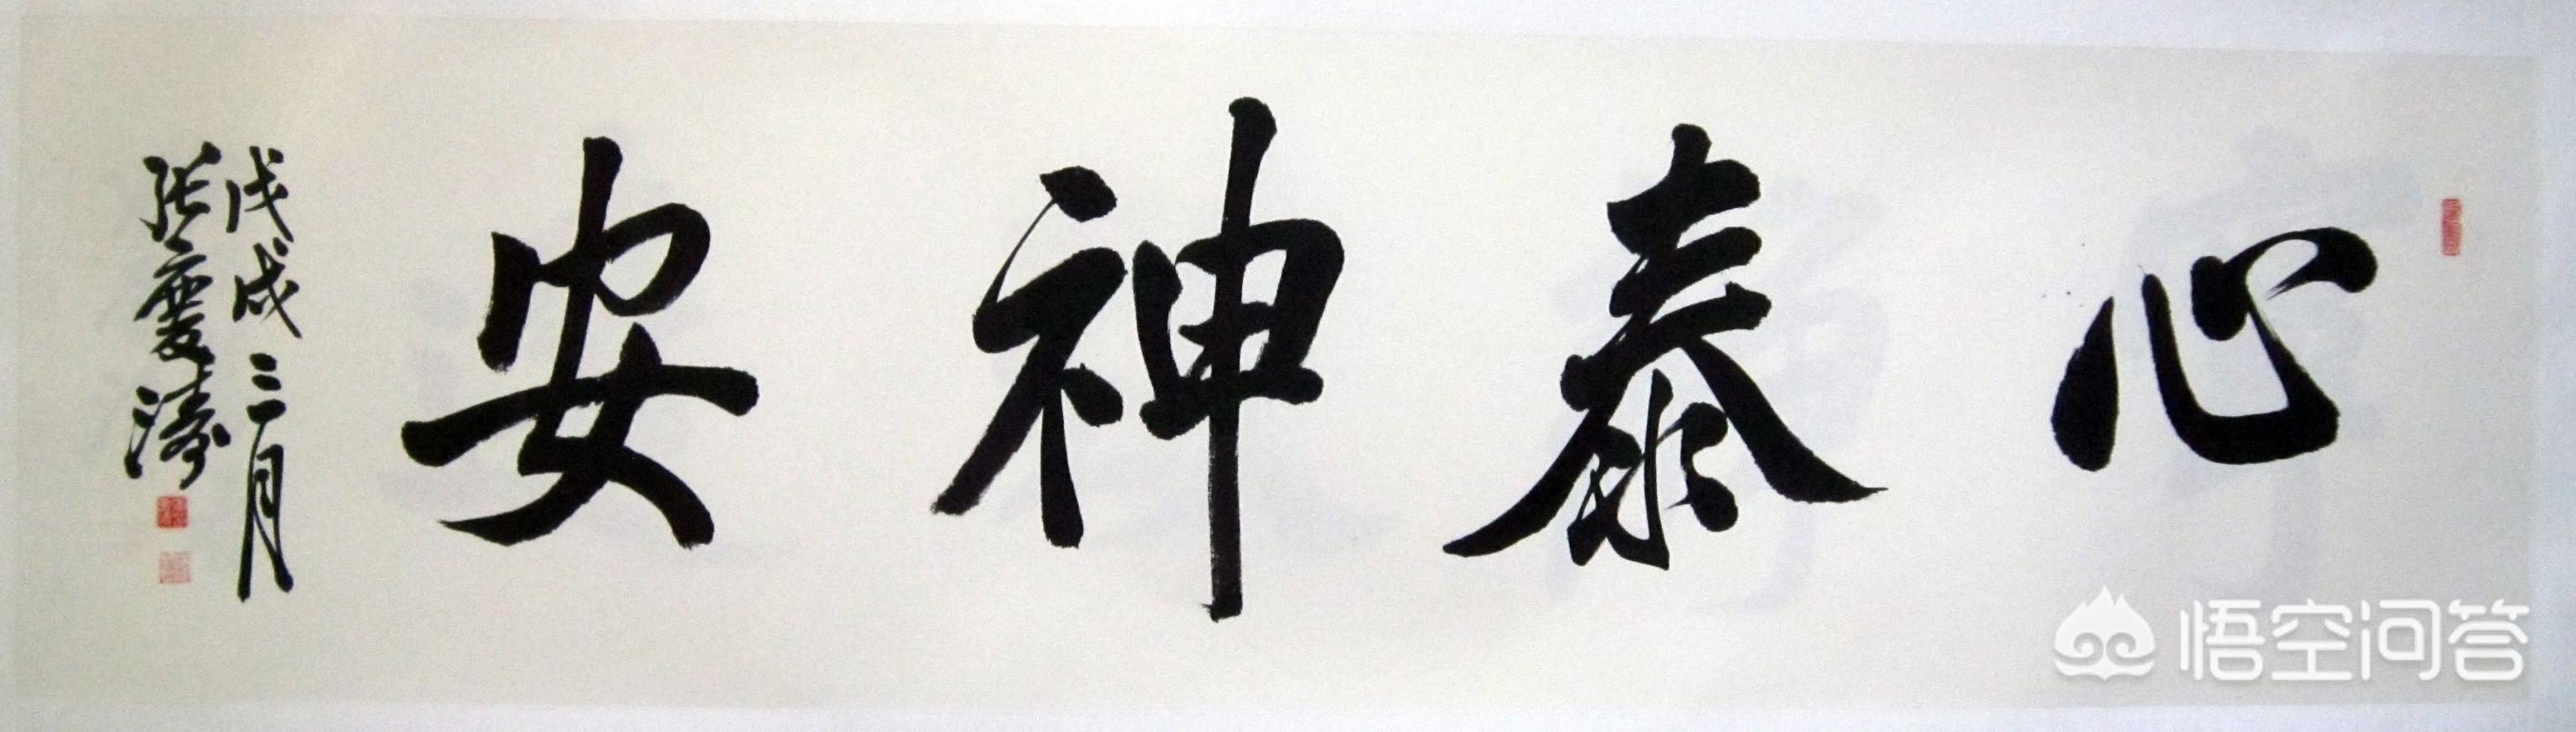 心泰神安
戊戌三月
张庆涛
悟空问答